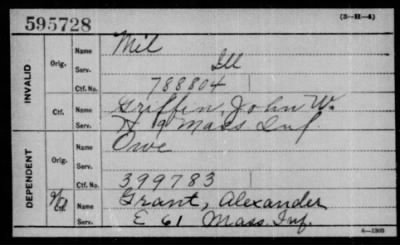 595728
(3—H—4)
INVALID
Orig.
Name Mil
Serv. Ill
Ctf. No. 788804
Ctf.
Name Griffin, John W.
Serv. H 9 Mass Inf.
DEPENDENT
Orig.
Name Owe
Serv.
Ctf. No. 399783
Ctf.
Name Grant, Alexander
Serv. E 61 Mass. Inf.